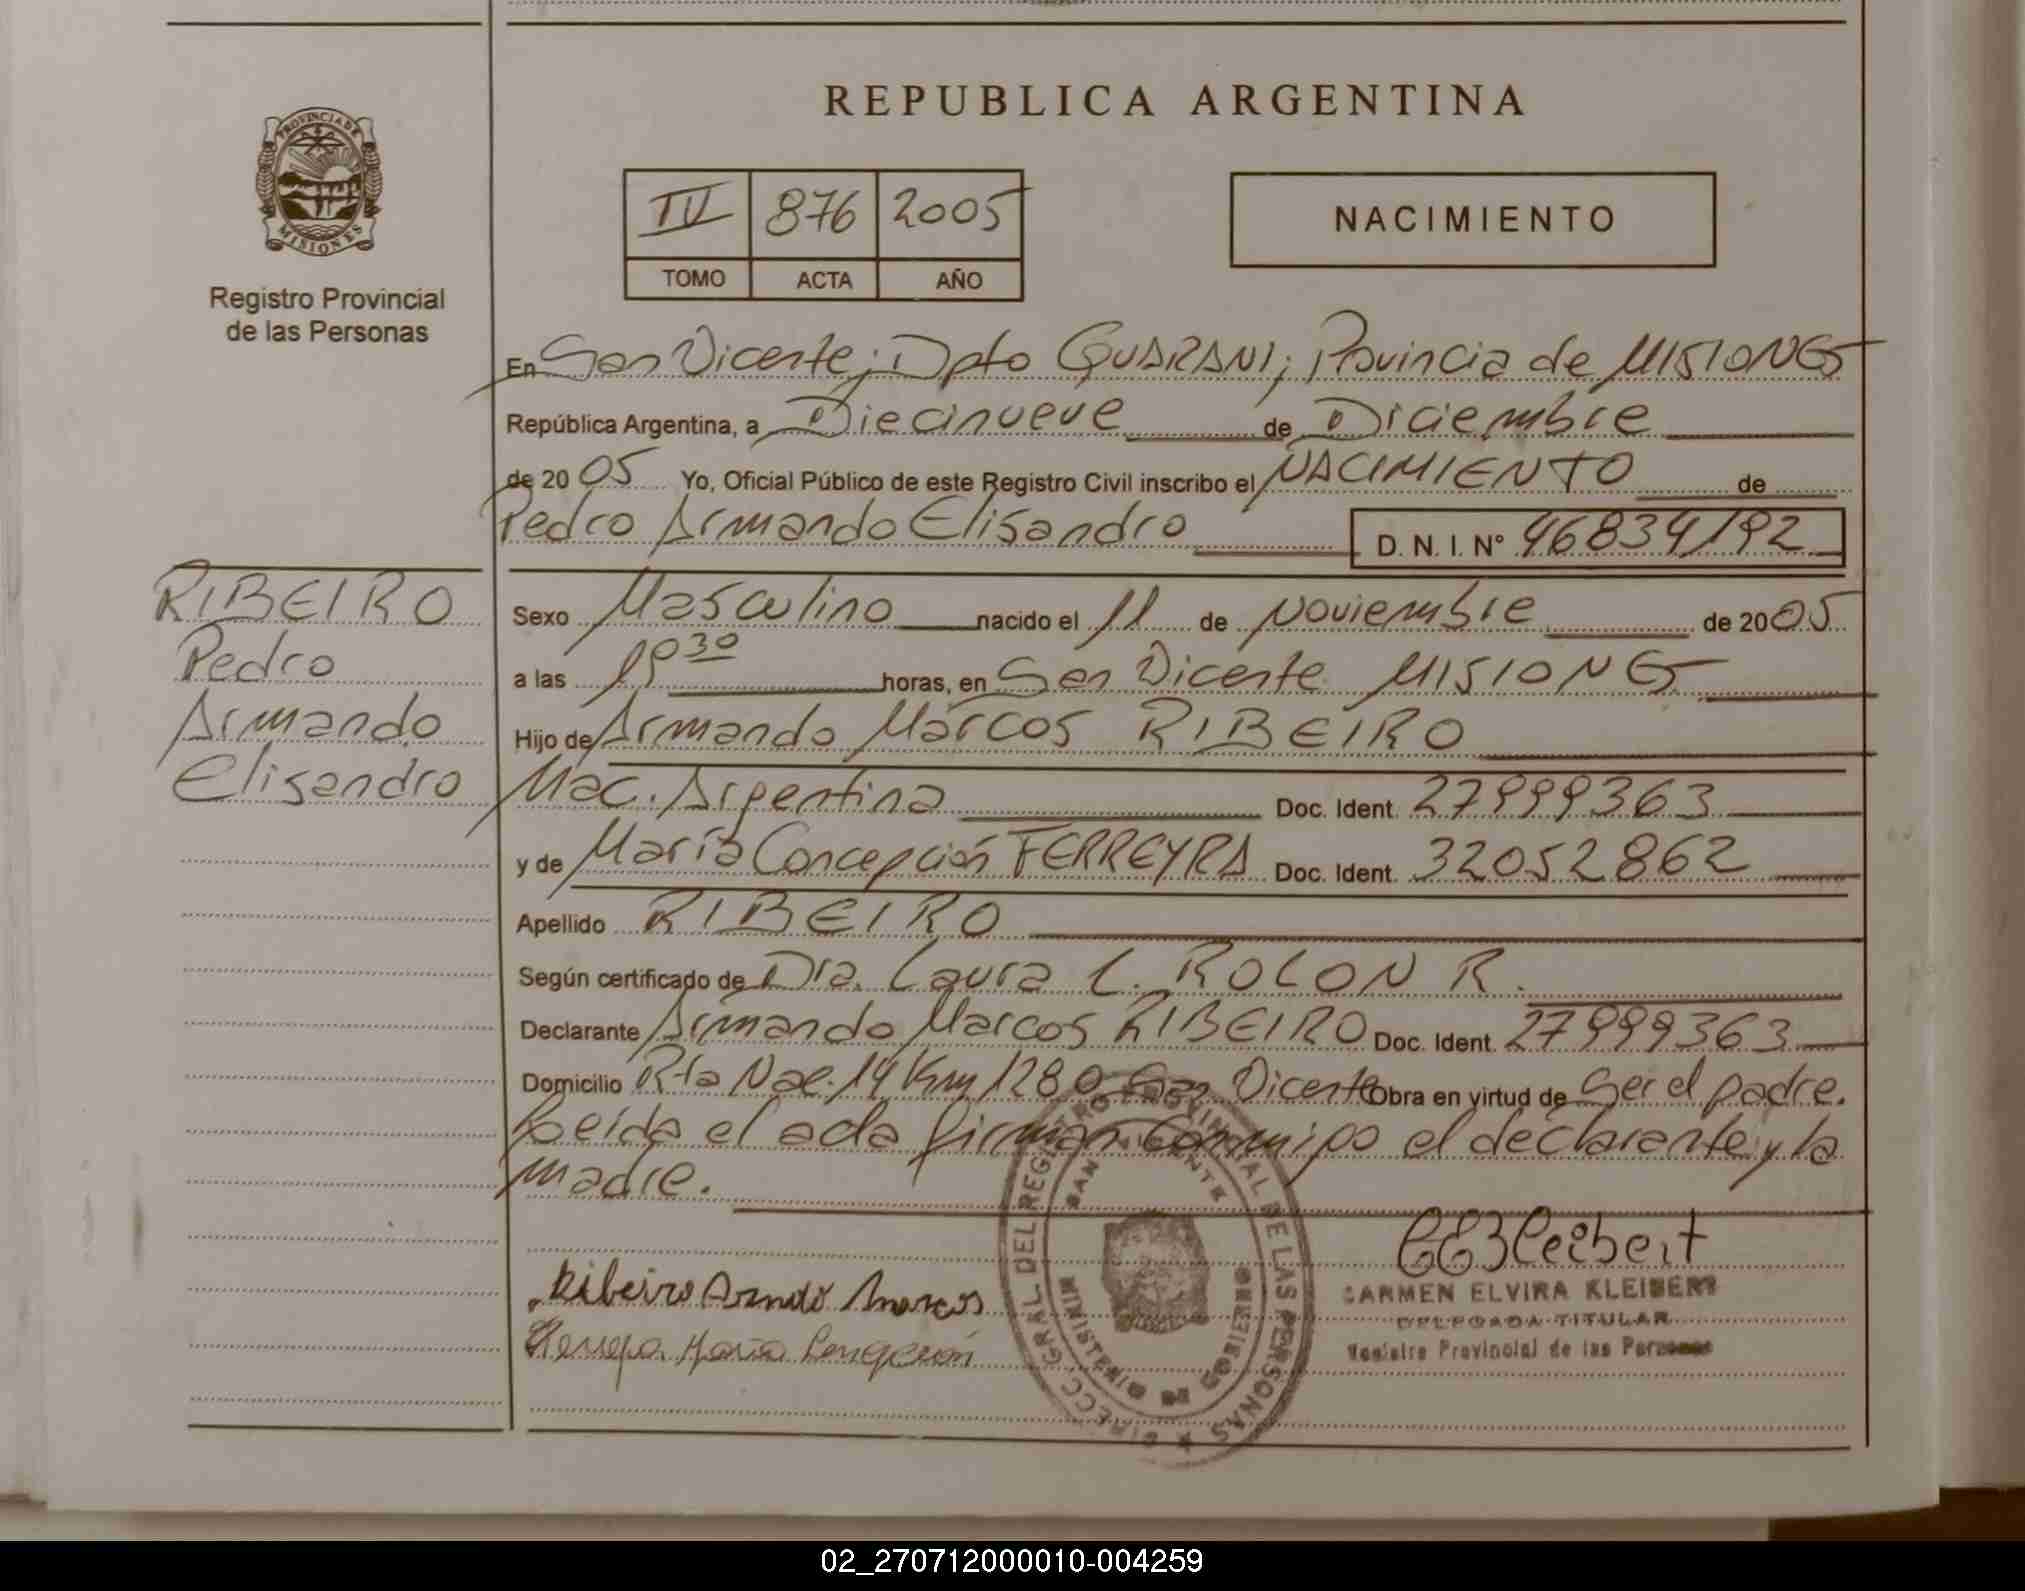 REPUBLICA ARGENTINA
PROVINCIA DE
MISIONES
Registro Provincial
de las Personas
IV 876 2005
TOMO ACTA AÑO
NACIMIENTO
En San Vicente; Dpto GUARANI; Provincia de MISIONES
República Argentina, a Diecinueve de Diciembre
de 2005 Yo, Oficial Público de este Registro Civil inscribo el NACIMIENTO de
Pedro Armando Elisandro D. N. I. N° 46834192
RIBEIRO
Pedro
Armando
Elisandro
Sexo Masculino nacido el 11 de Noviembre de 2005
a las horas, en San Vicente MISIONES
Hijo de Armando Marcos RIBEIRO
Nac. Argentina Doc. Ident. 27999363
y de María Concepción FERREYRA Doc. Ident. 32052862
Apellido RIBEIRO
Según certificado de Dra. Laura L. ROLON R.
Declarante Armando Marcos RIBEIRO Doc. Ident. 27999363
Domicilio Rta Nac. 14 Km 1280 San Vicente Obra en virtud de Ser el padre.
Leída el acta firman conmigo el declarante y la
madre.
Ribeiro Armando Marcos
María
CEKleibert
CARMEN ELVIRA KLEIBERT
DELEGADA TITULAR
Registro Provincial de las Personas
DIRECC. GRAL. DEL REGISTRO PROVINCIAL DE LAS PERSONAS
SAN VICENTE
MINISTERIO DE GOBIERNO
02_270712000010-004259